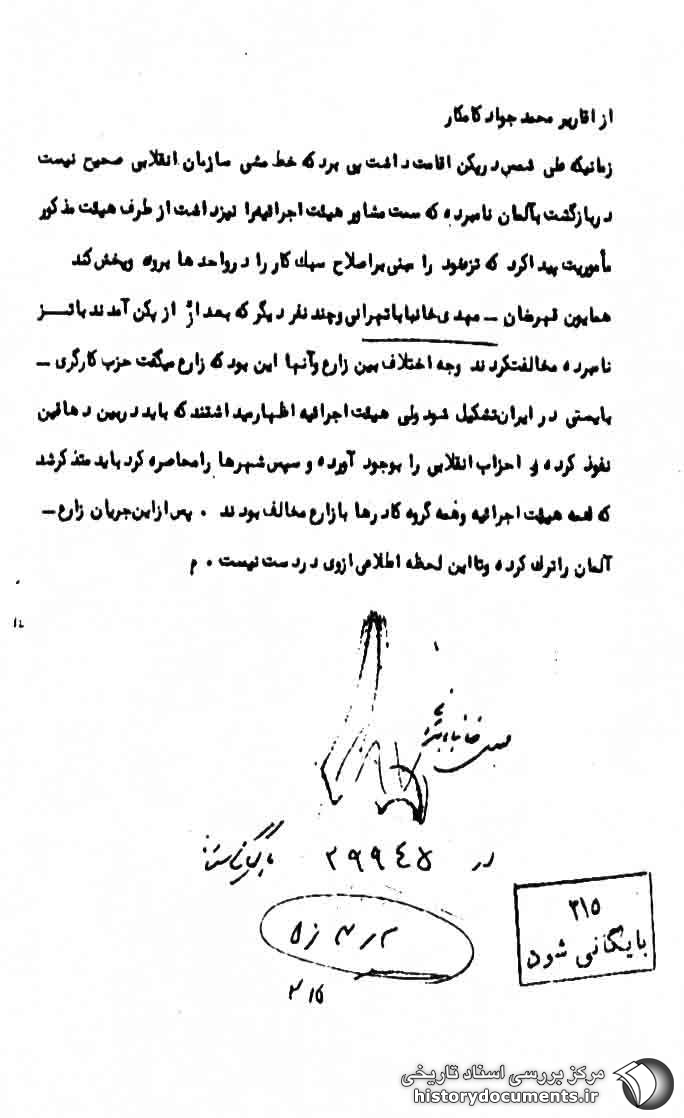 از اقاریر محمد جواد کامکار
زمانیکه طی شمس در پکن اقامت داشت پی برد که خط مشی سازمان انقلابی صحیح نیست
در بازگشت بآلمان نامبرده که سمت مشاور هیئت اجرائیه را نیز داشت از طرف هیئت مذکور
مأموریت پیدا کرد که تز خود را مبنی بر اصلاح سبك کار را در واحدها برده و پخش کند
همایون قهرمان ـ مهدی خانبابا تهرانی و چند نفر دیگر که بعد از از پکن آمدند با تز
نامبرده مخالفت کردند وجه اختلاف بین زارع و آنها این بود که زارع میگفت حزب کارگری ـ
بایستی در ایران تشکیل شود ولی هیئت اجرائیه اظهار میداشتند که باید در بین دهاقین
نفوذ کرده و احزاب انقلابی را بوجود آورده و سپس شهرها را محاصره کرد باید متذکر شد
که همه هیئت اجرائیه و همه گروه کادرها با زارع مخالف بودند . پس از این جریان زارع ـ
آلمان را ترك کرده و تا این لحظه اطلاعی از وی در دست نیست . م
مهدی خانبابا تهرانی
در ۳۹۹٤۵ بایگانی
۳۱۵
بایگانی شود
۳۱۵
مرکز بررسی اسناد تاریخی
historydocuments.ir